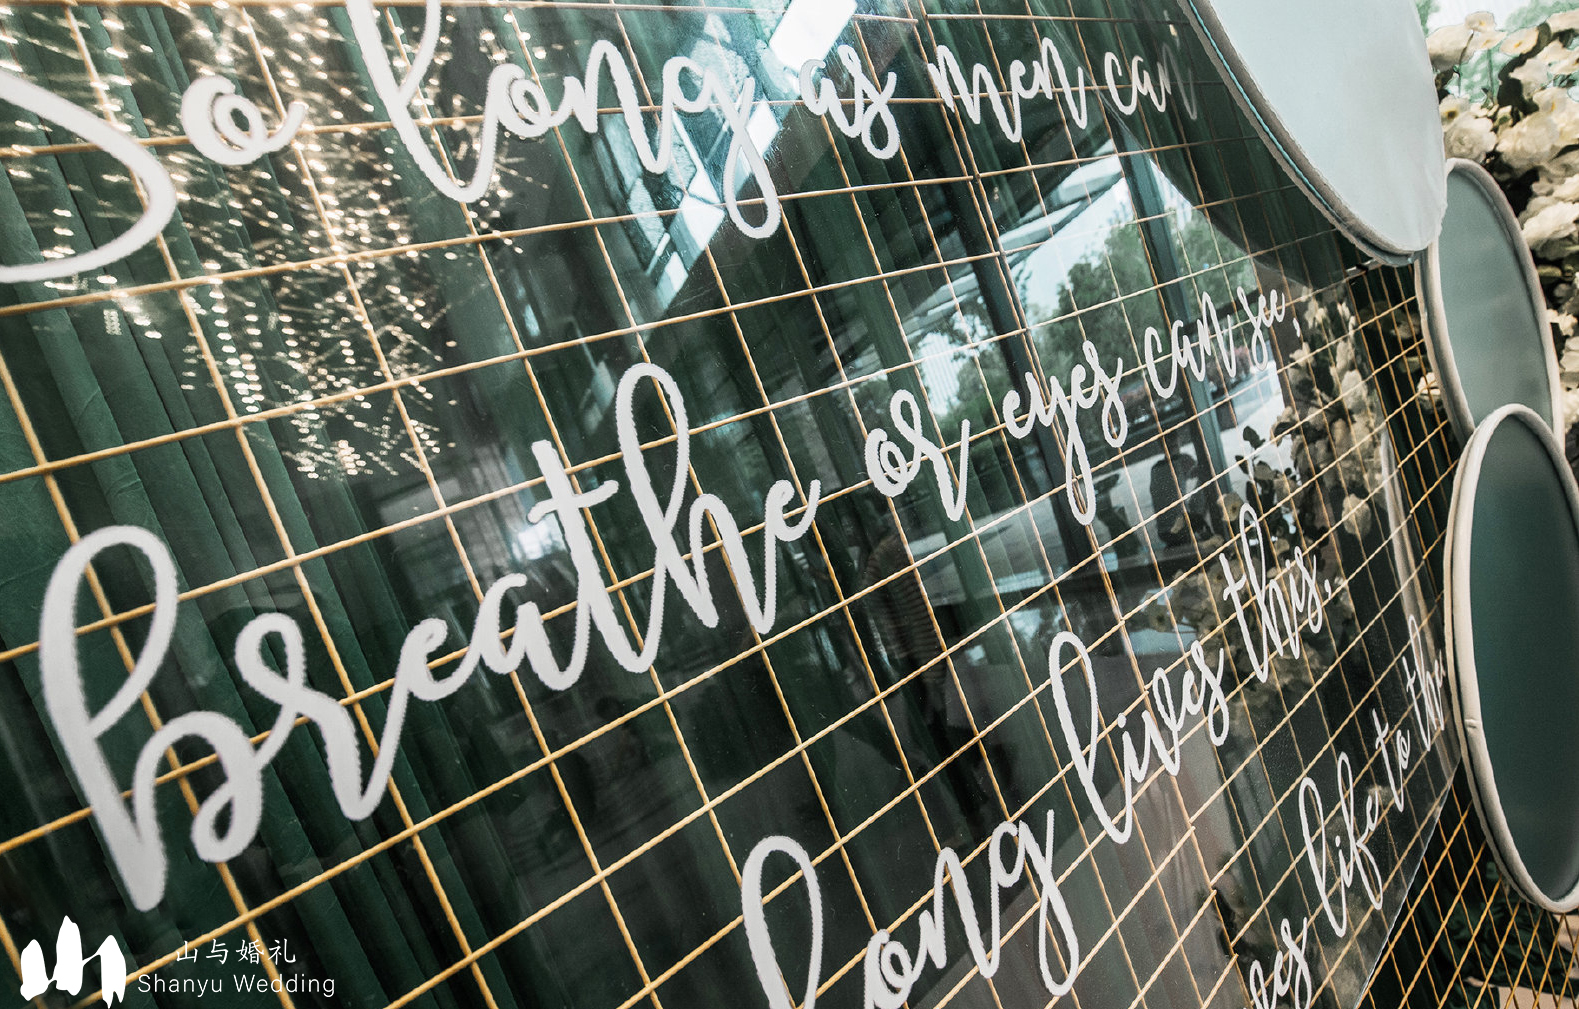 So long as men can
breathe or eyes can see,
long lives this,
life to
山与婚礼
Shanyu Wedding